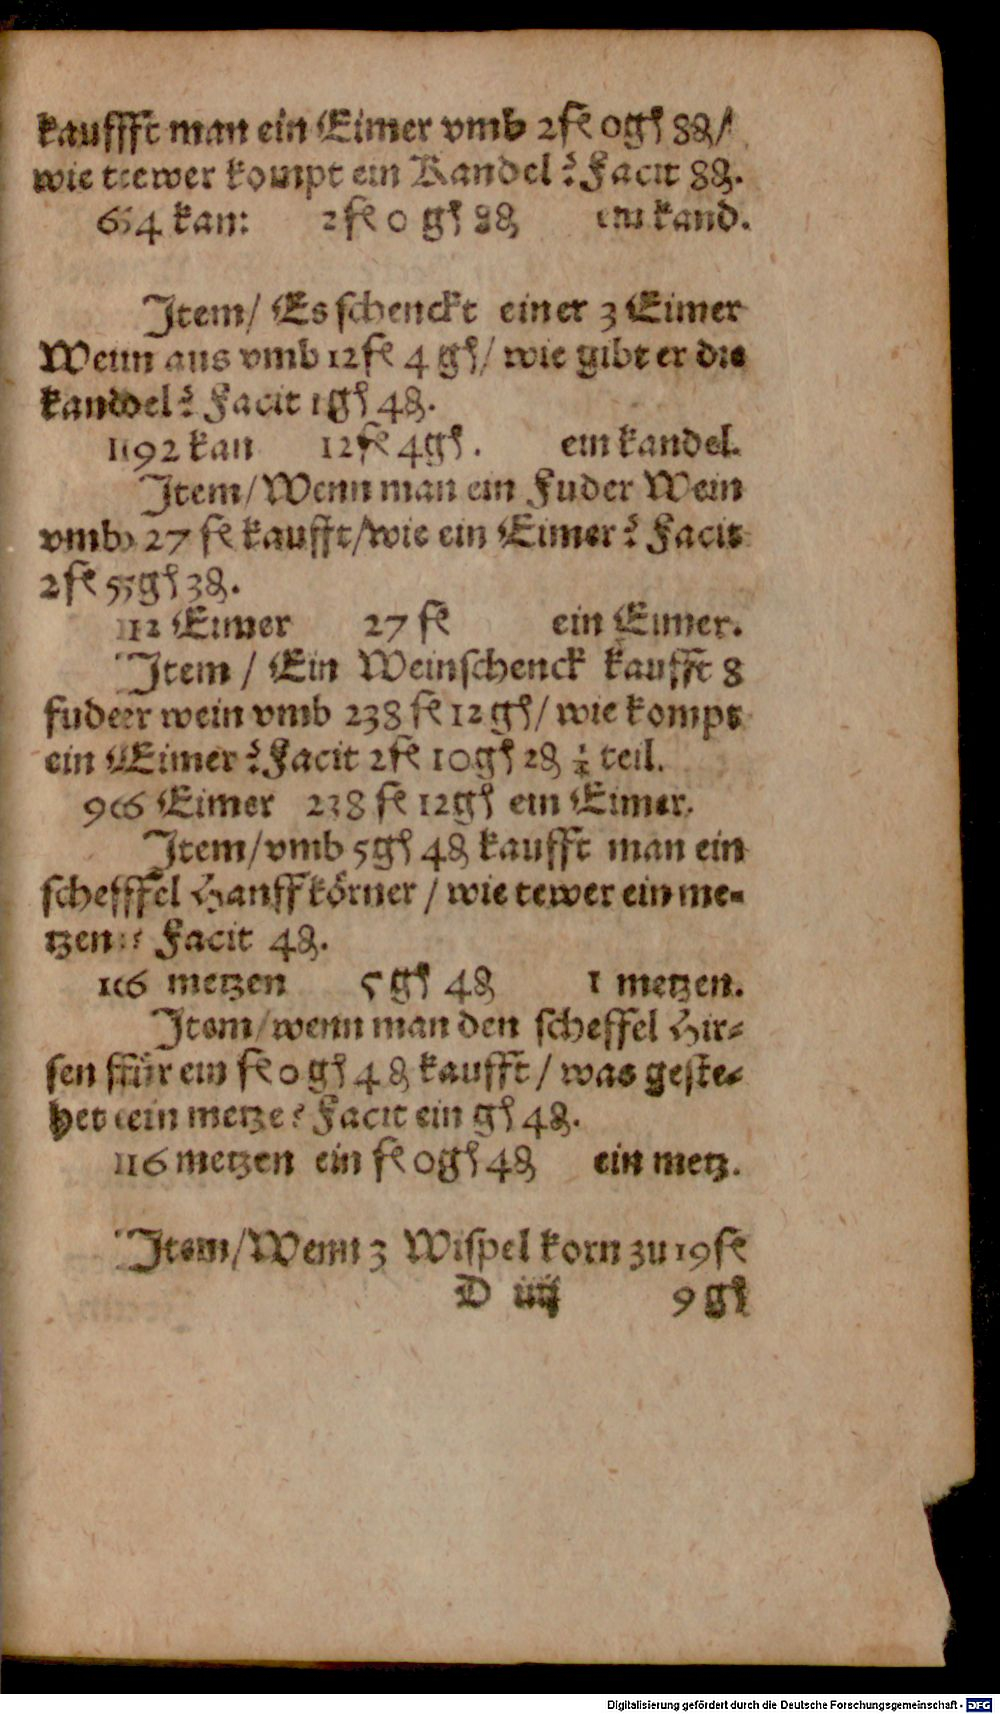 kaufft man ein Eimer vmb 2 fl 0 gſ 8 ₰/
wie tewer kompt ein Kandel? Facit 8 ₰.
64 kan: 2 fl 0 gſ 8 ₰ ein kand.
Item/ Es schenckt einer 3 Eimer
Wein aus vmb 12 fl 4 gſ/ wie gibt er die
kandel? Facit 1 gſ 4 ₰.
192 kan 12 fl 4 gſ. ein kandel.
Item/ Wenn man ein Fuder Wein
vmb 27 fl kaufft/ wie ein Eimer? Facit
2 fl 5 gſ 3 ₰.
12 Eimer 27 fl ein Eimer.
Item / Ein Weinschenck kaufft 8
fuder wein vmb 238 fl 12 gſ/ wie kompt
ein Eimer? Facit 2 fl 10 gſ 2 ₰ teil.
96 Eimer 238 fl 12 gſ ein Eimer.
Item/ vmb 5 gſ 4 ₰ kaufft man ein
scheffel Hanffkörner / wie tewer ein me-
tzen? Facit 4 ₰.
16 metzen 5 gſ 4 ₰ 1 metzen.
Item/ wenn man den scheffel Hir-
sen für ein fl 0 gſ 4 ₰ kaufft / was geste-
het ein metze? Facit ein gſ 4 ₰.
16 metzen ein fl 0 gſ 4 ₰ ein metz.
Item/ Wenn 3 Wispel korn zu 19 fl
D iiij 9 gſ
Digitalisierung gefördert durch die Deutsche Forschungsgemeinschaft - DFG